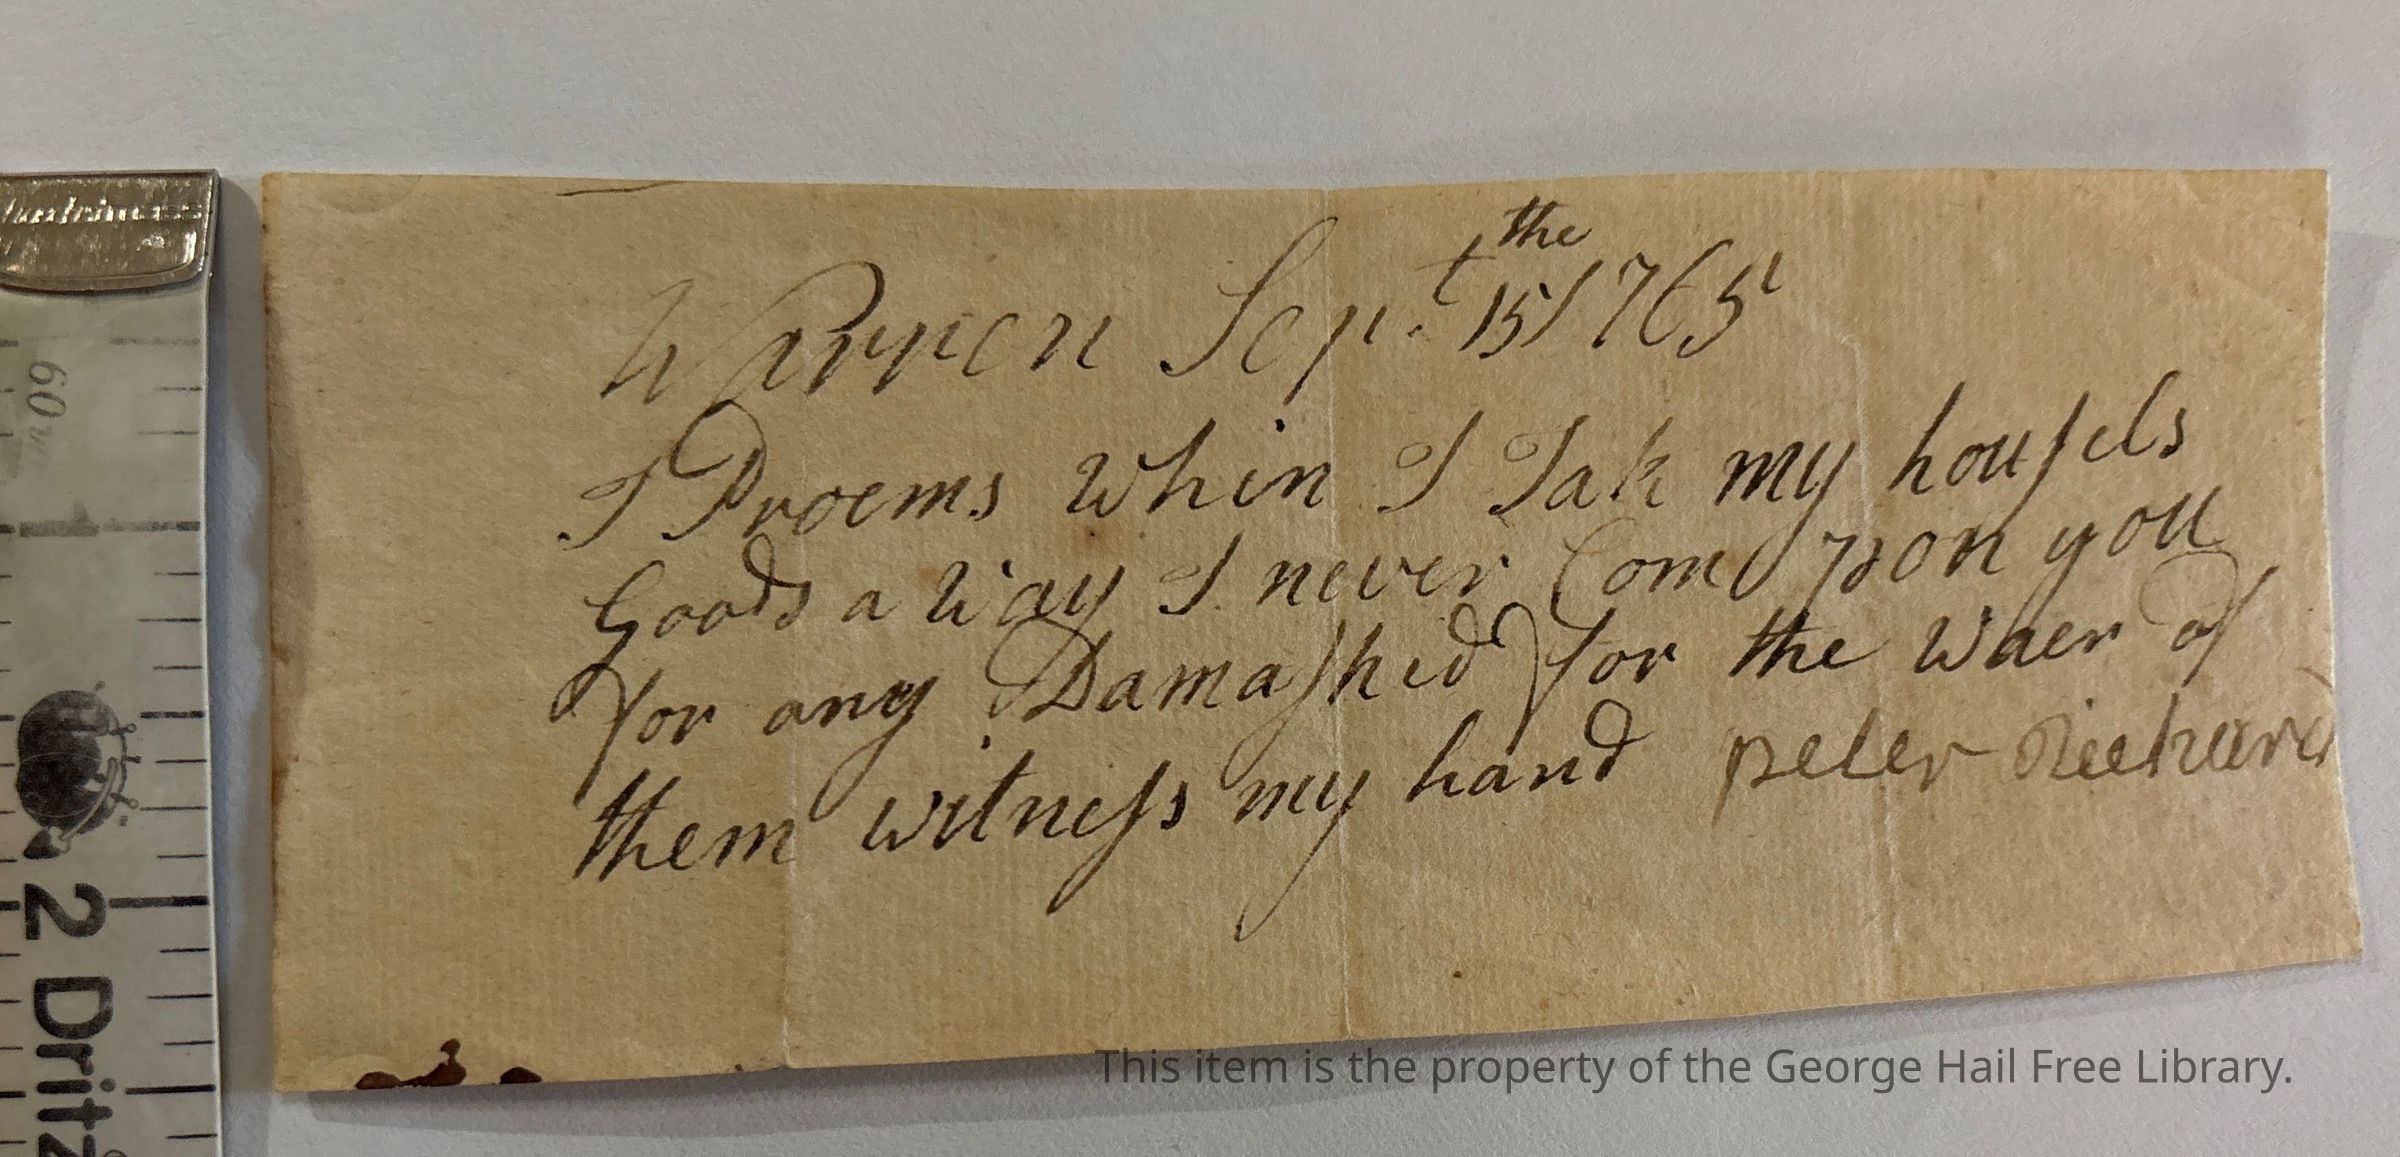 Warren Sept. 15the 1765
I Proems Whin I Tak my housels
Goods a Way I never Com pon you
for any Damashed for the Waer of
them witness my hand peter Rickard
60
2 Dritz
This item is the property of the George Hail Free Library.